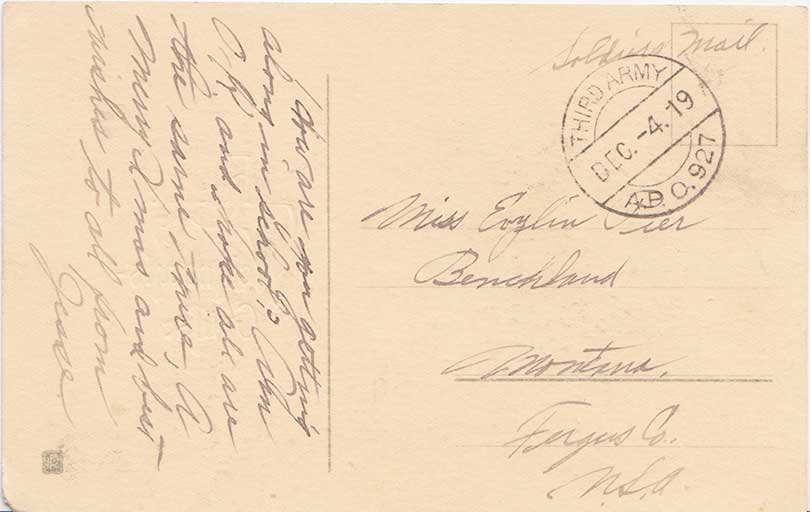 How are you getting
along in school? Am
O.K. and hope all are
the same there, A
Merry Xmas and best
wishes to all from
Jesse.
Soldiers Mail.
THIRD ARMY
DEC. -4. 19
A.P.O. 927
Miss Evylin Pier
Benchland
Montana.
Fergus Co.
U.S.A.